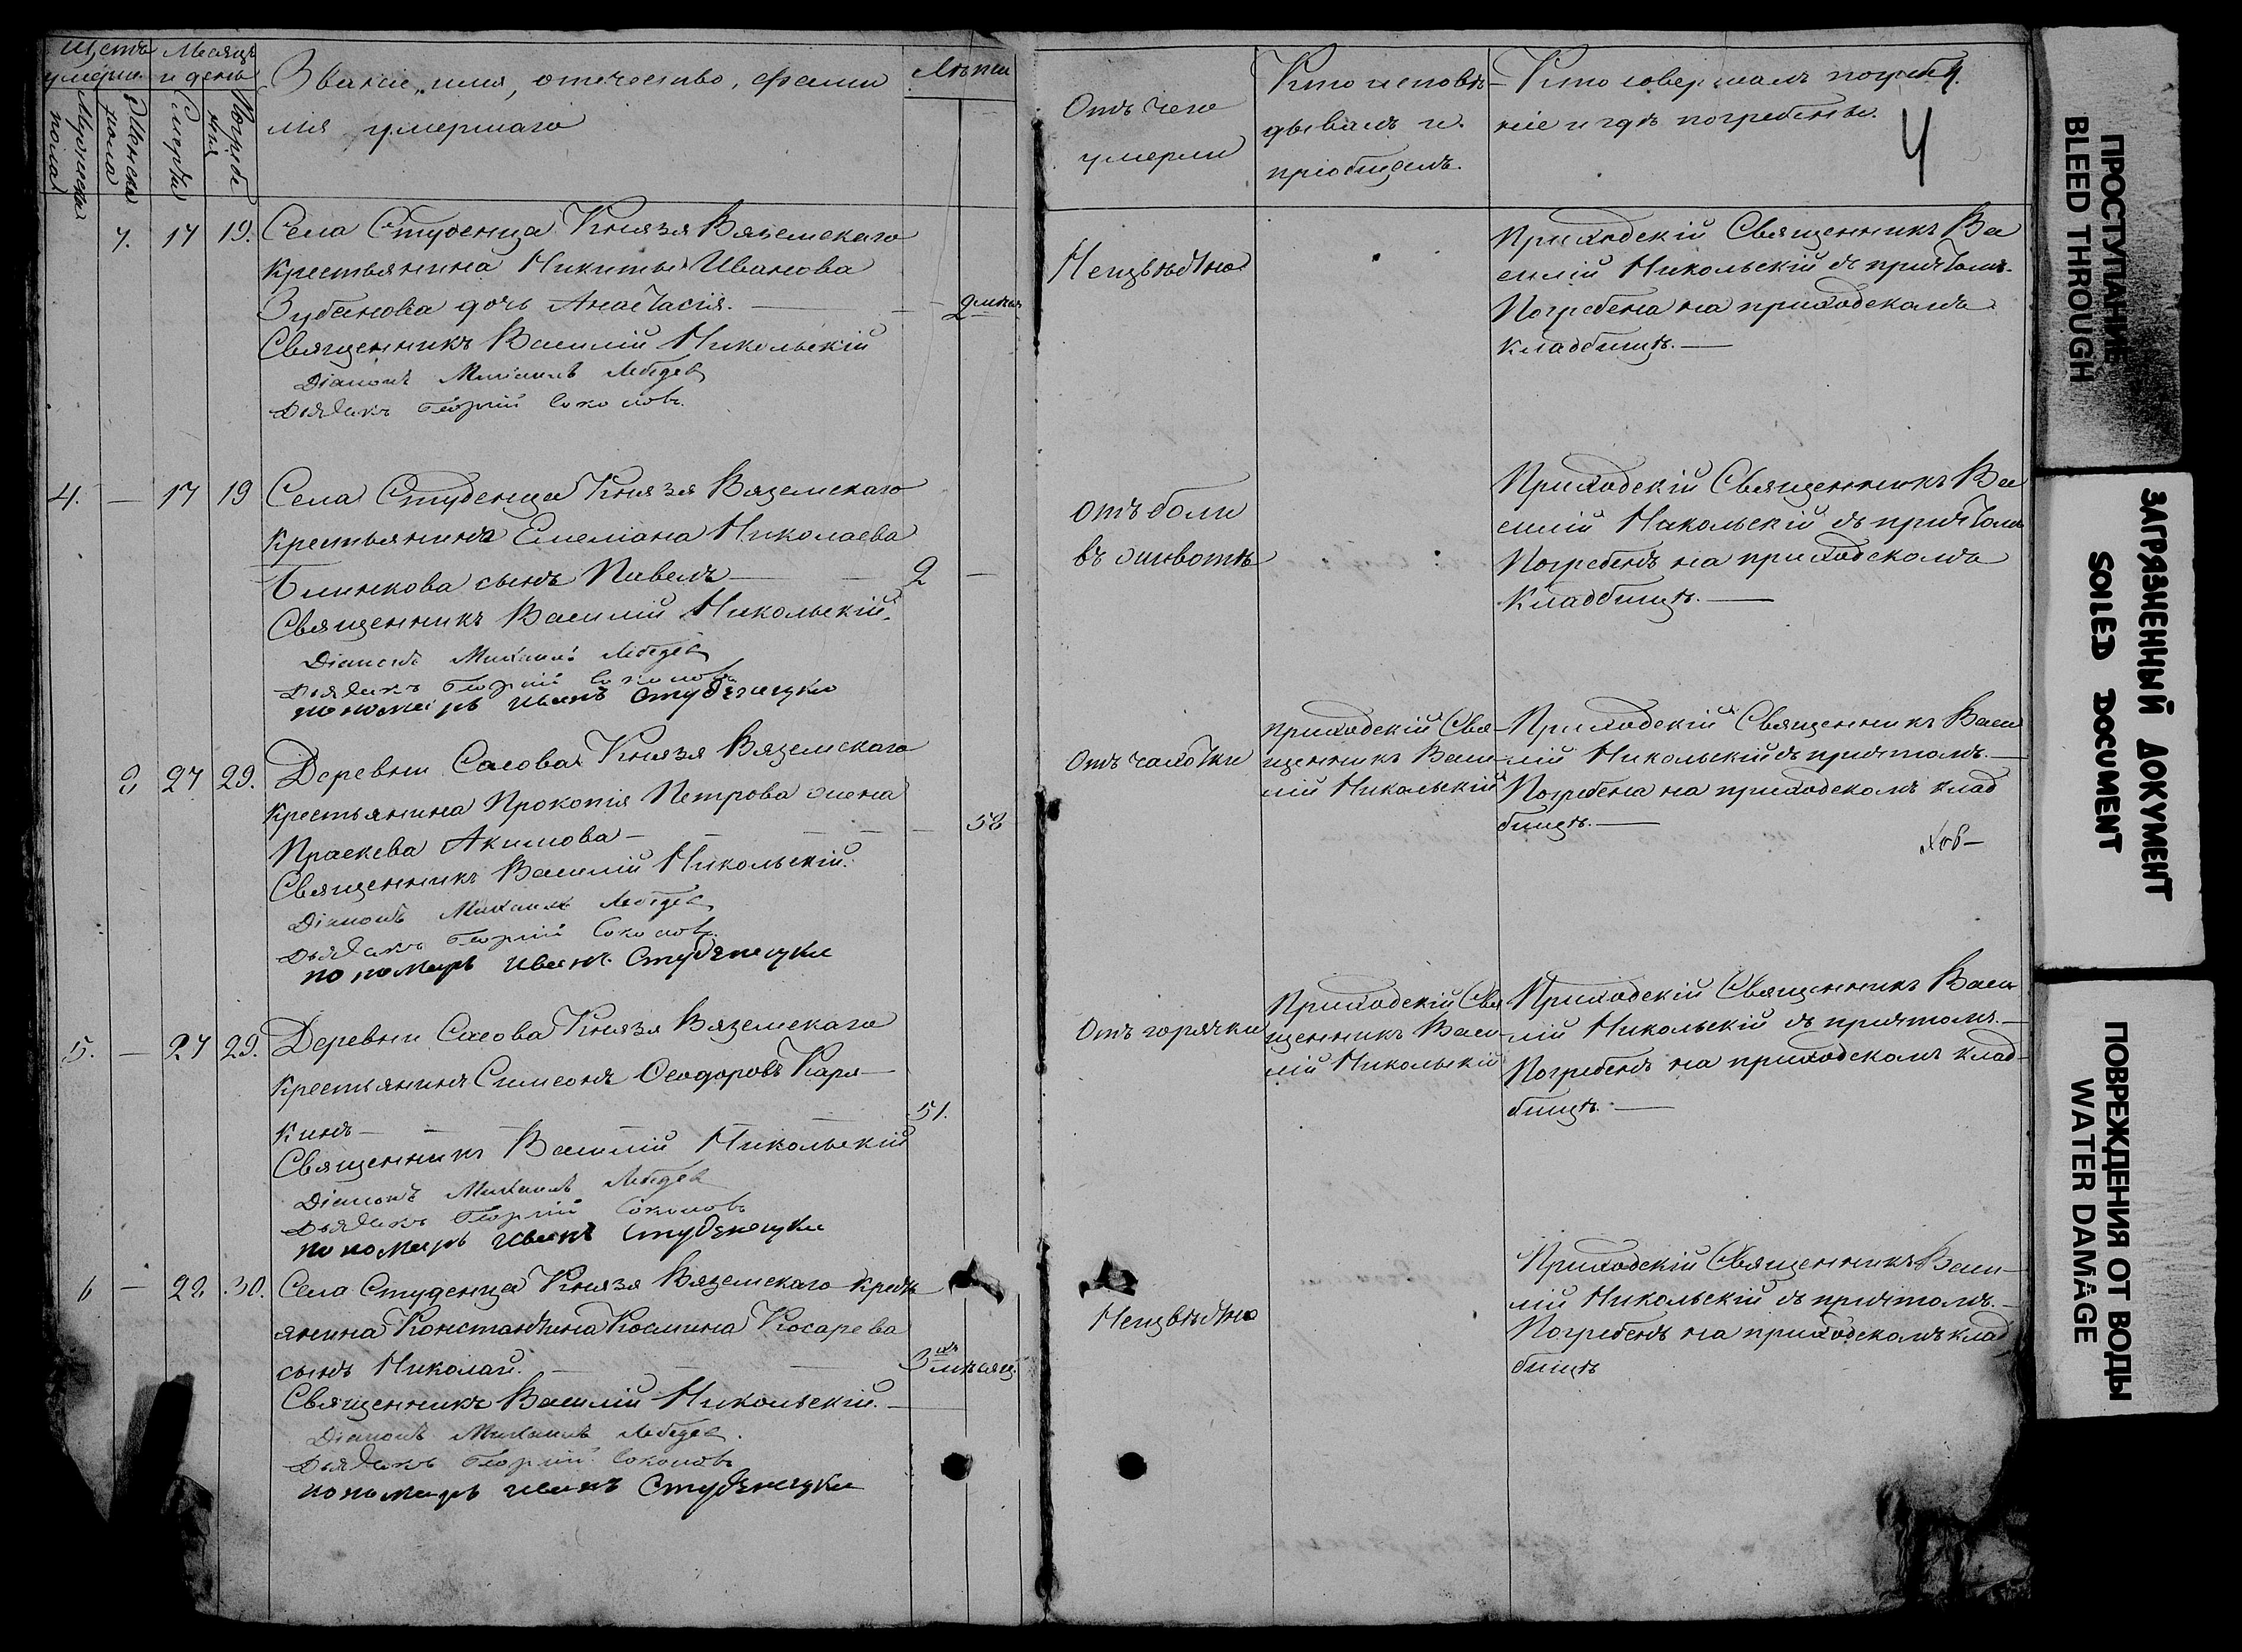 Щетъ умерш.
Мѣсяцъ и день
Званіе, имя, отечество, фами
лія умершаго
Лѣта
Мужеска пола
Женска пола
Смерти
Погребенія
Отъ чего
умерли
Кто исповѣ-
дывалъ и
пріобщалъ.
Кто совершалъ погребе
ніе и гдѣ погребены.
4
7. 17 19. Села Студенца Князя Вяземскаго
крестьянина Никиты Иванова
Зубанова дочь Анастасія. —
Священникъ Василій Никольскій
Діаконъ Михаилъ Лебедев
Дьячекъ Георгій Соколовъ.
Неизвѣстно
Приходскій Священникъ Ва
силій Никольскій съ причтомъ.
Погребена на приходскомъ
кладбищѣ. —
4. — 17 19 Села Студенца Князя Вяземскаго
крестьянина Емеліана Николаева
Блинкова сынъ Павелъ — 2 —
Священникъ Василій Никольскій.
Діаконъ Михаилъ Лебедев
Дьячекъ Георгій Соколовъ
пономарь Иванъ Студенецки
отъ боли
въ животѣ
Приходскій Священникъ Ва
силій Никольскій съ причтомъ
Погребенъ на приходскомъ
Кладбищѣ. —
27 29. Деревни Сасова Князя Вяземскаго
крестьянина Прокопія Петрова жена
Праскева Акимова — 58
Священникъ Василій Никольскій.
Діаконъ Михаилъ Лебедев
Дьячекъ Георгій Соколовъ.
пономарь Иванъ Студенецки
Отъ чахотки
приходскій Свя-
щенникъ Васи-
лій Никольскій
Приходскій Священникъ Васи
лій Никольскій съ причтомъ. —
Погребена на приходскомъ клад
бищѣ. —
5. — 27 29. Деревни Сасова Князя Вяземскаго
крестьянинъ Симеонъ Ѳеодоровъ Каря-
кинъ — 51.
Священникъ Василій Никольскій
Діаконъ Михаилъ Лебедев
Дьячекъ Георгій Соколовъ
пономарь Иванъ Студенецки
Отъ горячки
Приходскій Свя
щенникъ Васи-
лій Никольскій
Приходскій Священникъ Васи
лій Никольскій съ причтомъ. —
Погребенъ на приходскомъ клад-
бищѣ. —
6 — 28 30. Села Студенца Князя Вяземскаго кресть
янина Константина Космина Косарева
сынъ Николай. — 3хъ мѣсяц.
Священникъ Василій Никольскій. —
Діаконъ Михаилъ Лебедев.
Дьячекъ Георгій Соколовъ
пономарь Иванъ Студенецки
Неизвѣстно
Приходскій Священникъ Васи-
лій Никольскій съ причтомъ. —
Погребенъ на приходскомъ клад
бищѣ
ПРОСТУПАНИЕ
BLEED THROUGH
ЗАГРЯЗНЕННЫЙ ДОКУМЕНТ
SOILED DOCUMENT
ПОВРЕЖДЕНИЯ ОТ ВОДЫ
WATER DAMAGE